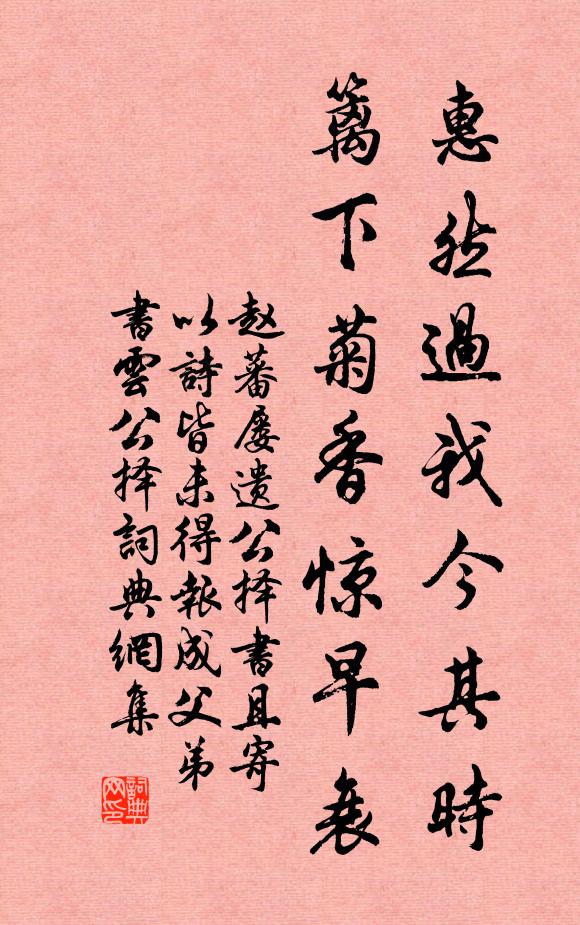 惠然過我今其時
籬下菊香惊早衰
赵蕃屡遗公择書且寄
以詩皆未得報成父弟
書雲公择詞典網集
詞典
网印